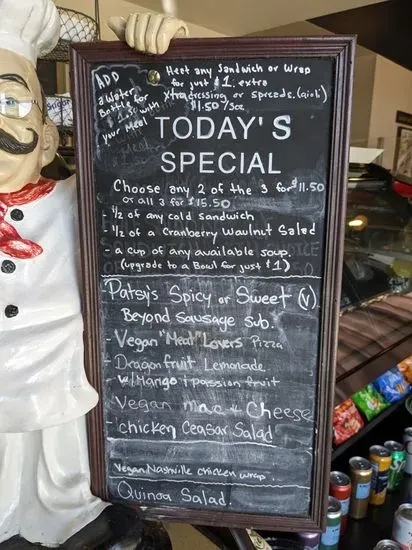 ADD
a Water
Bottle for
$1.50 with
your Meal
Heet any Sandwich or Wrap
for just $1. extra
Xtra dressing or spreds. (aioli)
$1.50/3oz
TODAY'S
SPECIAL
Choose any 2 of the 3 for $11.50
or all 3 for $15.50
- 1/2 of any cold sandwich
- 1/2 of a Cranberry Waulnut Salad
- a cup of any available soup.
(upgrade to a Bowl for just $1)
Patsy's Spicy or Sweet (V)
Beyond Sausage Sub.
- Vegan "Meat" Lovers Pizza
- Dragonfruit Lemonade
- w/Mango & passion fruit
Vegan mac & Cheese
- chicken Ceasar Salad
Vegan Nashville chicken wrap.
Quinoa Salad.